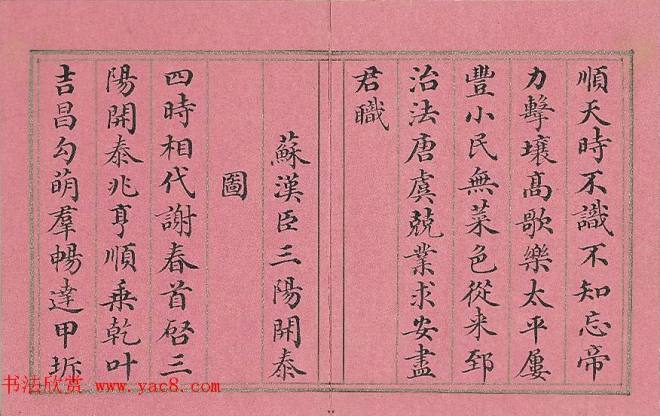 順天時不識不知忘帝
力擊壤髙歌樂太平屢
豐小民無菜色從来郅
治法唐虞兢業求安盡
君職
蘇漢臣三陽開泰
圖
四時相代謝春首啓三
陽開泰兆亨順乗乾叶
吉昌勾萌羣暢達甲坼
书法欣赏 www.yac8.com